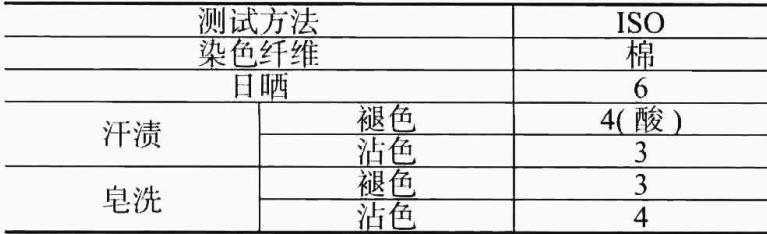 测试方法 ISO
染色纤维 棉
日晒 6
汗渍 褪色 4(酸)
沾色 3
皂洗 褪色 3
沾色 4